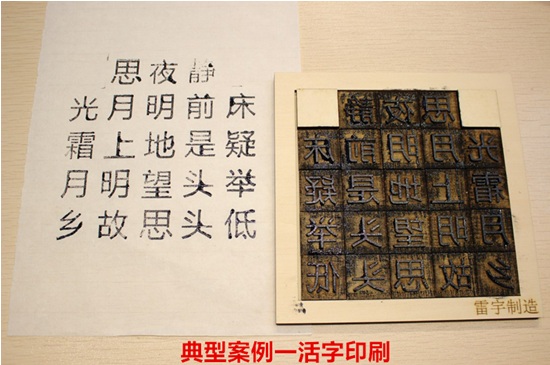 静夜思
床前明月光
疑是地上霜
举头望明月
低头思故乡
静夜思
床前明月光
疑是地上霜
举头望明月
低头思故乡
雷宇制造
典型案例一活字印刷